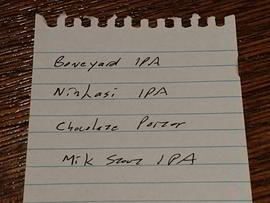 Boneyard IPA
Ninkasi IPA
Chocolate Porter
Milk Stout IPA